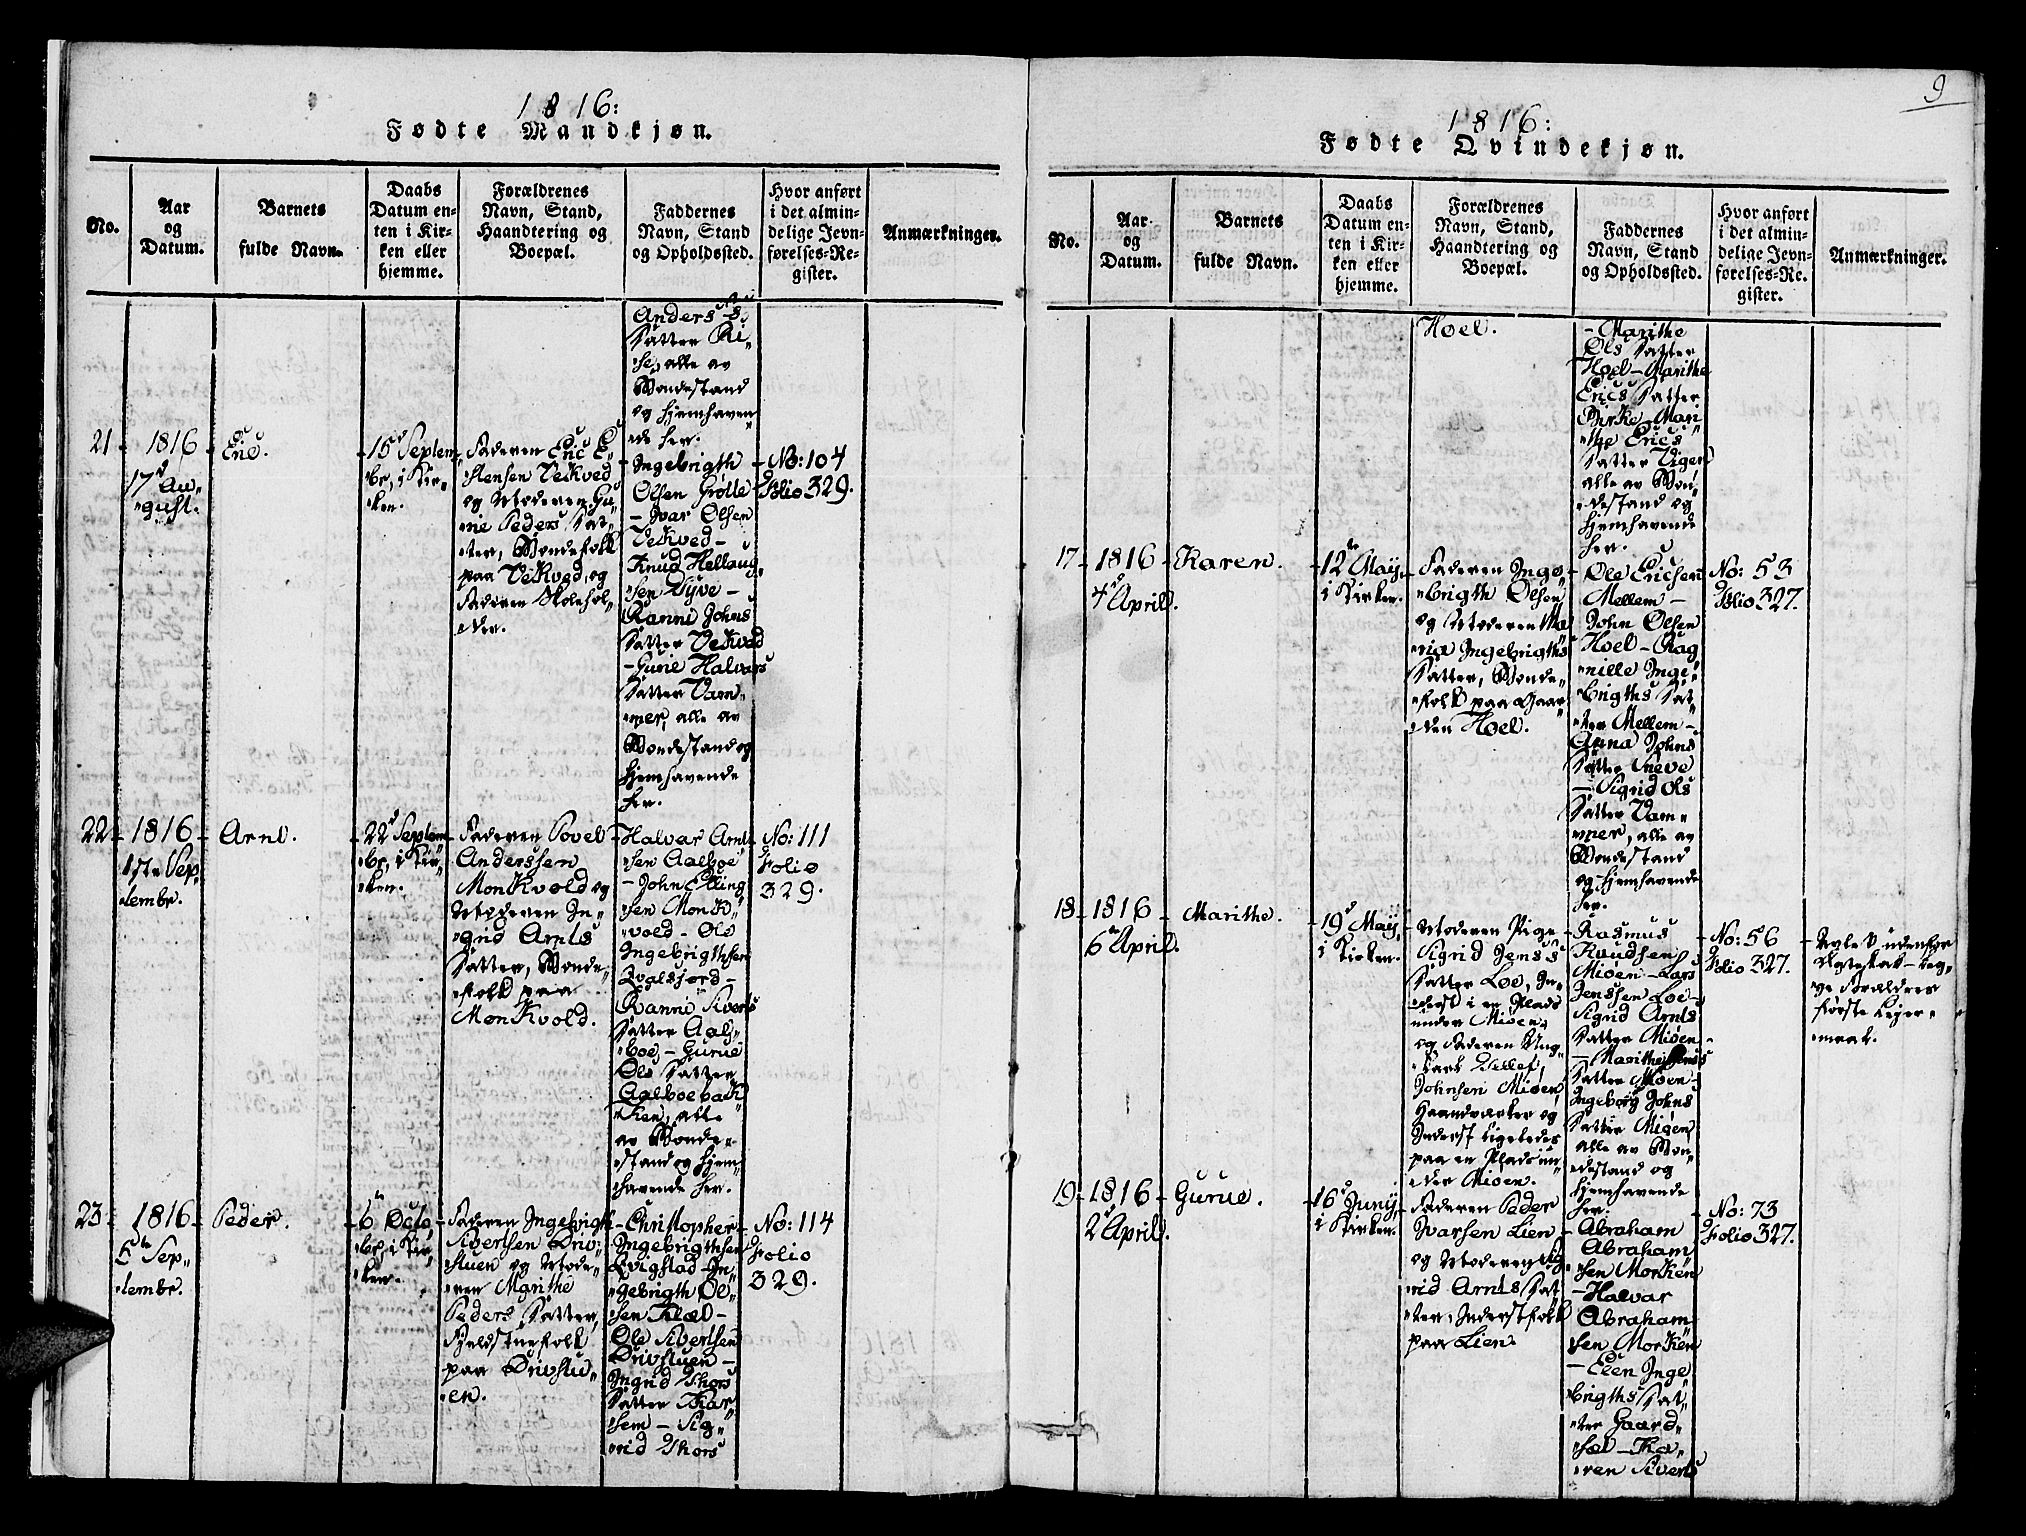 1816:
Fødte Mandkjøn.
No.
Aar
og
Datum.
Barnets
fulde Navn.
Daabs
Datum en-
ten i Kir-
ken eller
hjemme.
Forældrenes
Navn, Stand,
Haandtering og
Boepæl.
Faddernes
Navn, Stand
og Opholdssted.
Hvor anført
i det almin-
delige Jevn-
førelses-Re-
gister.
Anmærkninger.
Anders
Datter Ri-
se, alle av
Bondestand
og hjemhaven
de her.
21
1816
17d Au-
gust.
Eric.
15d Septem
br, i Kir-
ken.
Faderen Eric E-
stensen Vekved
og Moderen Gu-
rie Peders Dat-
ter, Bondefolk
paa Vekved, og
Faderen Skolehol-
der.
Ingebrigth
Olsen Grøtte
- Ivar Olsen
Vekved -
Knud Hellaug
sen Dyve -
Ranni Johns
Datter Vekved
- Gurie Halvars
Datter Vam-
mer, alle av
Bondestand og
hjemhavende
her.
No: 104
Folio 329.
22
1816
1ste Sep-
tembr.
Arnt.
22d Septem
br, i Kir-
ken.
Faderen Povel
Anderssen
Monkvold og
Moderen In-
grid Arnts
Datter, Bonde-
folk paa
Monkvold.
Halvar Arnt
sen Aalboe
- John Elling
sen Monk-
vold - Ole
Ingebrigthsen
Qvalsjord -
Ranni Siverts
Datter Aal-
boe - Gurue
Ols Datter
Aalboebak
ken, alle
av Bonde-
stand og hjem
havende her.
No: 111
Folio
329.
23
1816
5te Sep-
tembr.
Peder.
6te Octo
br, i Kir-
ken.
Faderen Ingebrigth
Sivertsen Driv-
stuen og Mode-
ren Marithe
Peders Datter,
Fjeldstuefolk
paa Drivstu-
en.
- Christopher
Ingebrigthsen
Evigstad - In-
gebrigth Ol-
sen Klæt -
Ole Sivertsen
Drivstuen -
Ingrid Thors
Datter Kar
sem - Sig-
rid Thors
No: 114
Folio
329.
9
1816:
Fødte Qvindekjøn.
No.
Aar
og
Datum.
Barnets
fulde Navn.
Daabs
Datum en-
ten i Kir-
ken eller
hjemme.
Forældrenes
Navn, Stand,
Haandtering og
Boepæl.
Faddernes
Navn, Stand
og Opholdssted.
Hvor anført
i det almin-
delige Jevn-
førelses-Re-
gister.
Anmærkninger.
Hoel.
- Marithe
Ols Datter
Hoel - Marithe
Erics Datter
Birke - Mari
the Erics
Datter Viger
alle av Bon-
destand og
hjemhavende
her.
17
1816
4d April.
Karen.
12te Maij
i Kirken.
Faderen Inge
brigth Olsen
og Moderen Ma
ria Ingebrigths
Datter, Bonde-
folk paa Gaar
den Hoel.
Ole Ericsen
Mellem -
John Olsen
Hoel - Rag
nille Inge-
brigths Dat-
ter Mellem -
Anna Johns
Datter Sneve
- Sigrid Ols
Datter Vam-
mer, alle av
Bondestand
og hjemhavende
her.
No: 53
Folio 327.
18
1816
6te April.
Marithe.
19d Maij
i Kirken.
Moderen Pige
Sigrid Jenss
Datter Loe, In-
derst i en Plads
under Miøen,
og Faderen Ung-
karl Tellef
Johnsen Miøen
Haandverker og
Inderst ligeledes
paa en Plads un-
der Miøen.
Rasmus
Knudsen
Miøen - Lars
Jenssen Loe -
Sigrid Arnts
Datter Miøen -
- Marithe Jenss
Datter Miøen -
Ingeborg Johns
Datter Miøen,
alle av Bon-
destand og
hjemhavende
her.
No: 56
Folio 327.
udenfor
Ægteskab - beg-
ge Forældres
første Lejer-
maal.
19
1816
2d April.
Gurue.
16d Junij
i Kirken.
Faderen Peder
Ivarsen Lien
og Moderen Sig
rid Arnts Dat-
ter, Inderstfolk
paa Lien.
- Abraham
Abraham
sen Morken
- Halvar
Abraham
sen Morken
- Elen Inge
brigths Dat-
ter Gaard-
sæl - Ka-
ren Siverts
No: 73
Folio 327.